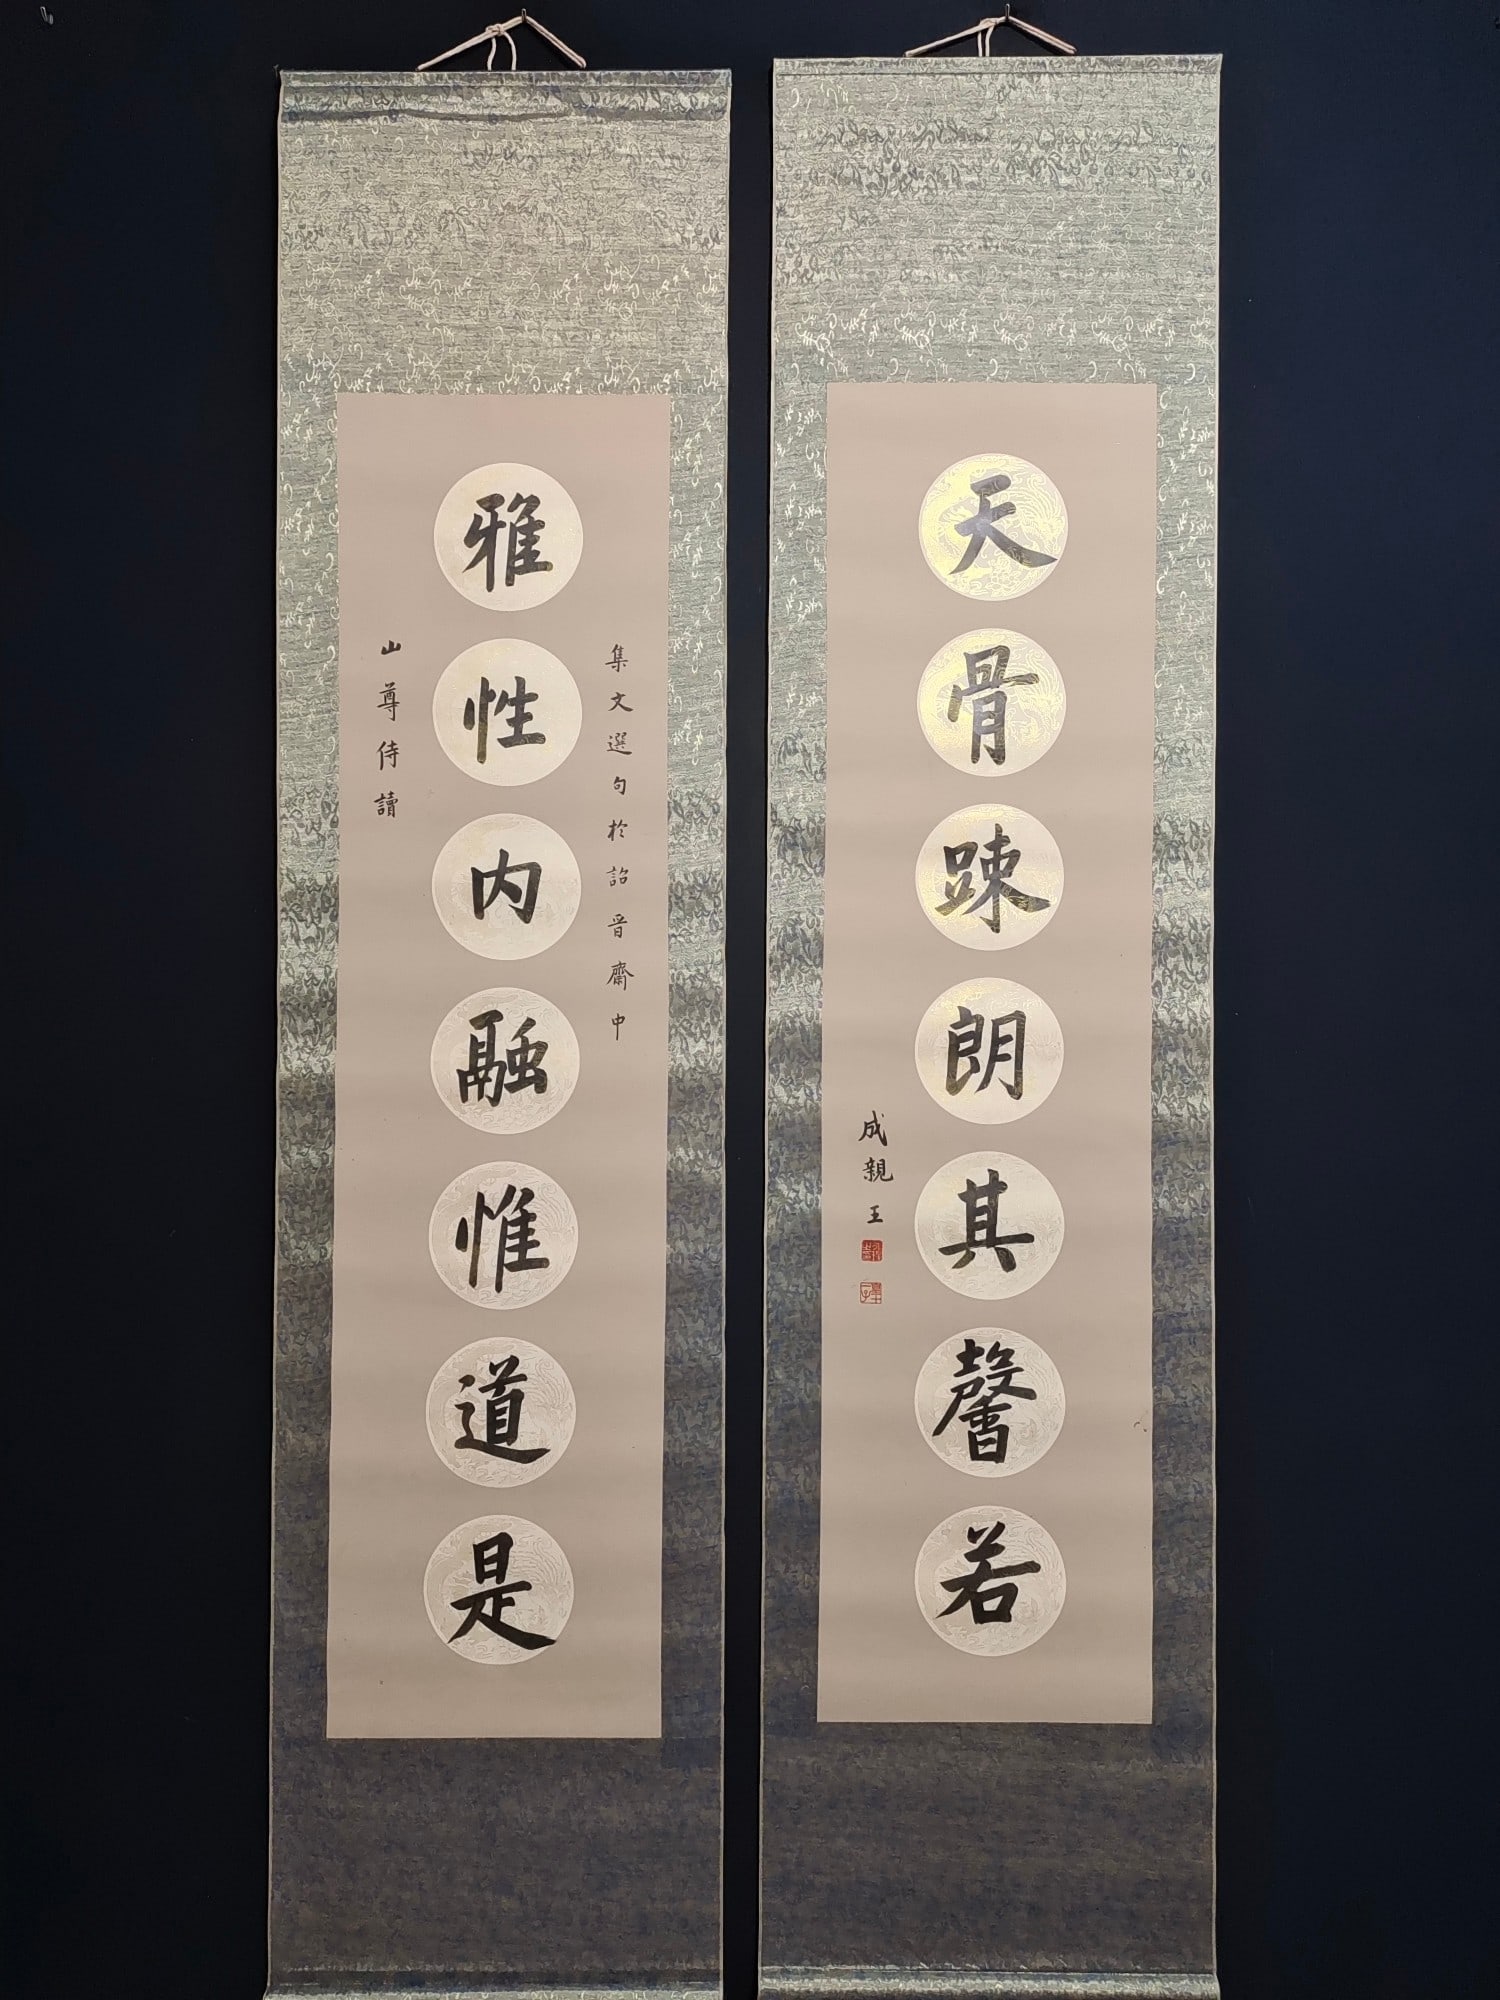 天骨踈朗其馨若
成親王
集文選句於詒晉齋中
雅性内融惟道是
山尊侍讀